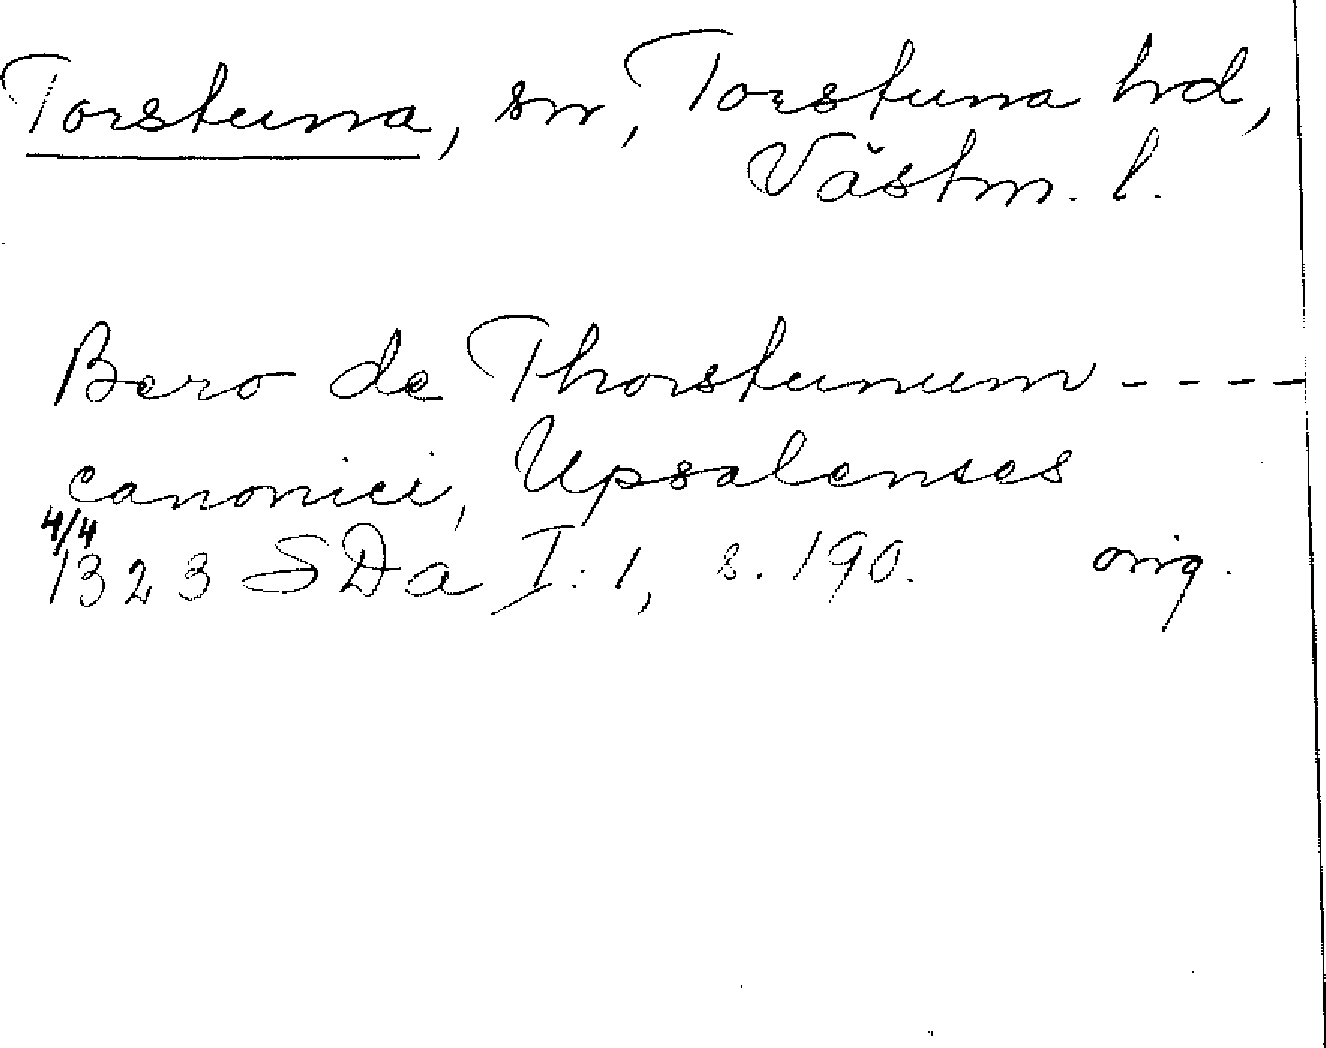 Torstuna, sn, Torstuna hd,
Västm. l.
Bero de Thorstunum ----
canonici, Upsalenses
4/4
1323 SDa I:1, s. 190. orig.